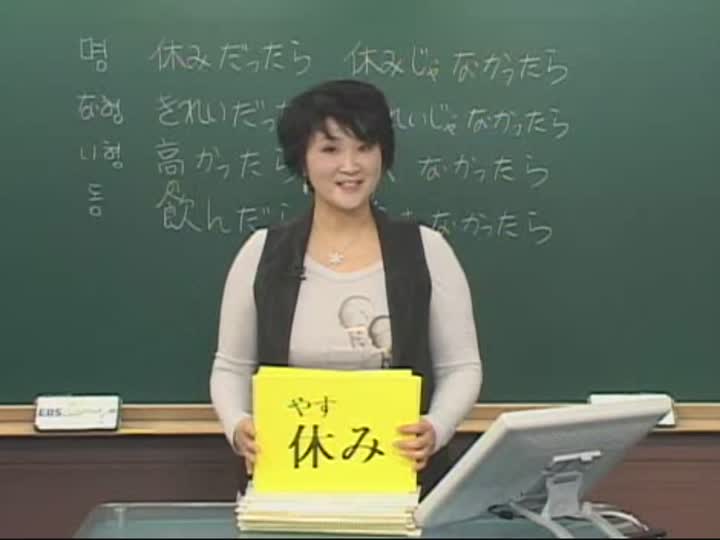 명 休みだったら 休みじゃなかったら
な형 きれいだっ れいじゃなかったら
い형 高かったら なかったら
동 飲んだら なかったら
EBS
やす
休み